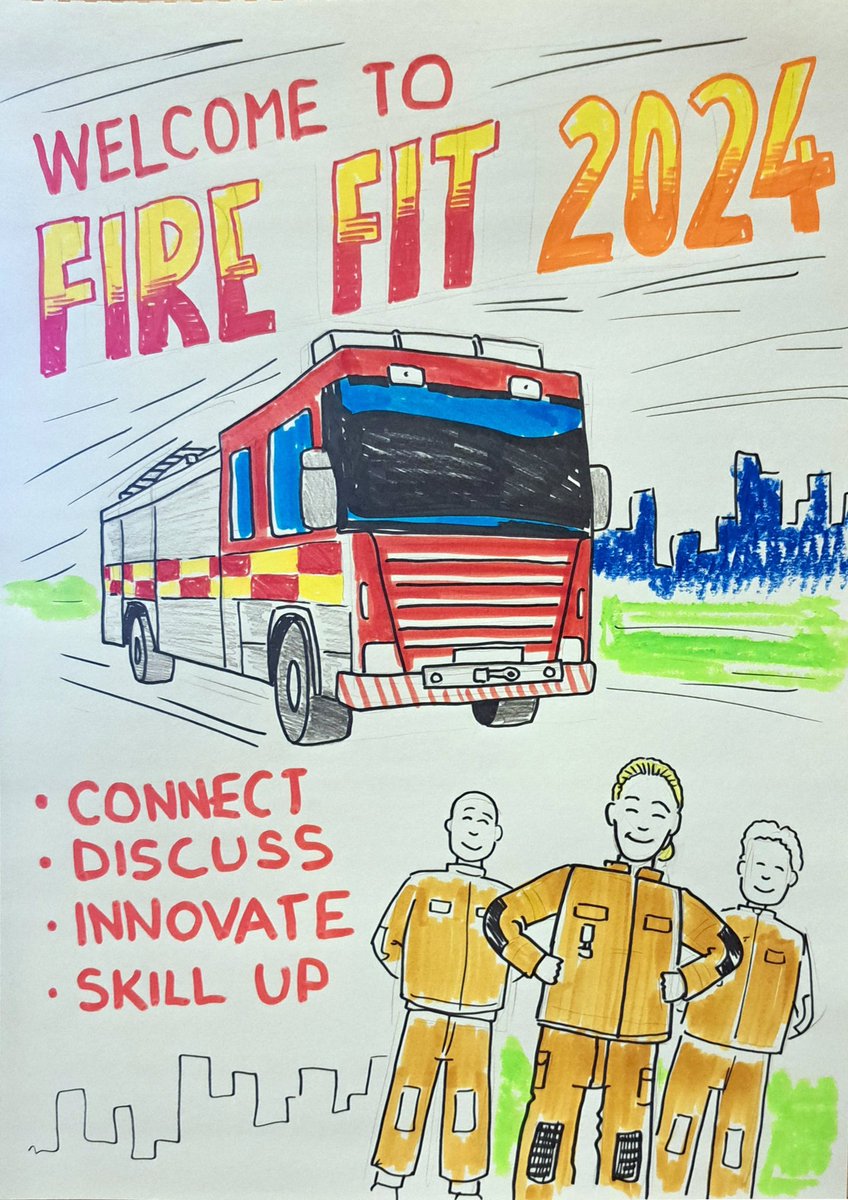 WELCOME TO
FIRE FIT 2024
• CONNECT
• DISCUSS
• INNOVATE
• SKILL UP